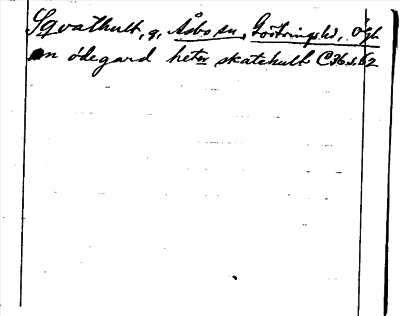 Sqvathult, g, Åsbo sn, Göstringshd, Ögh
en ödegard heter skatehult C36 s. 62